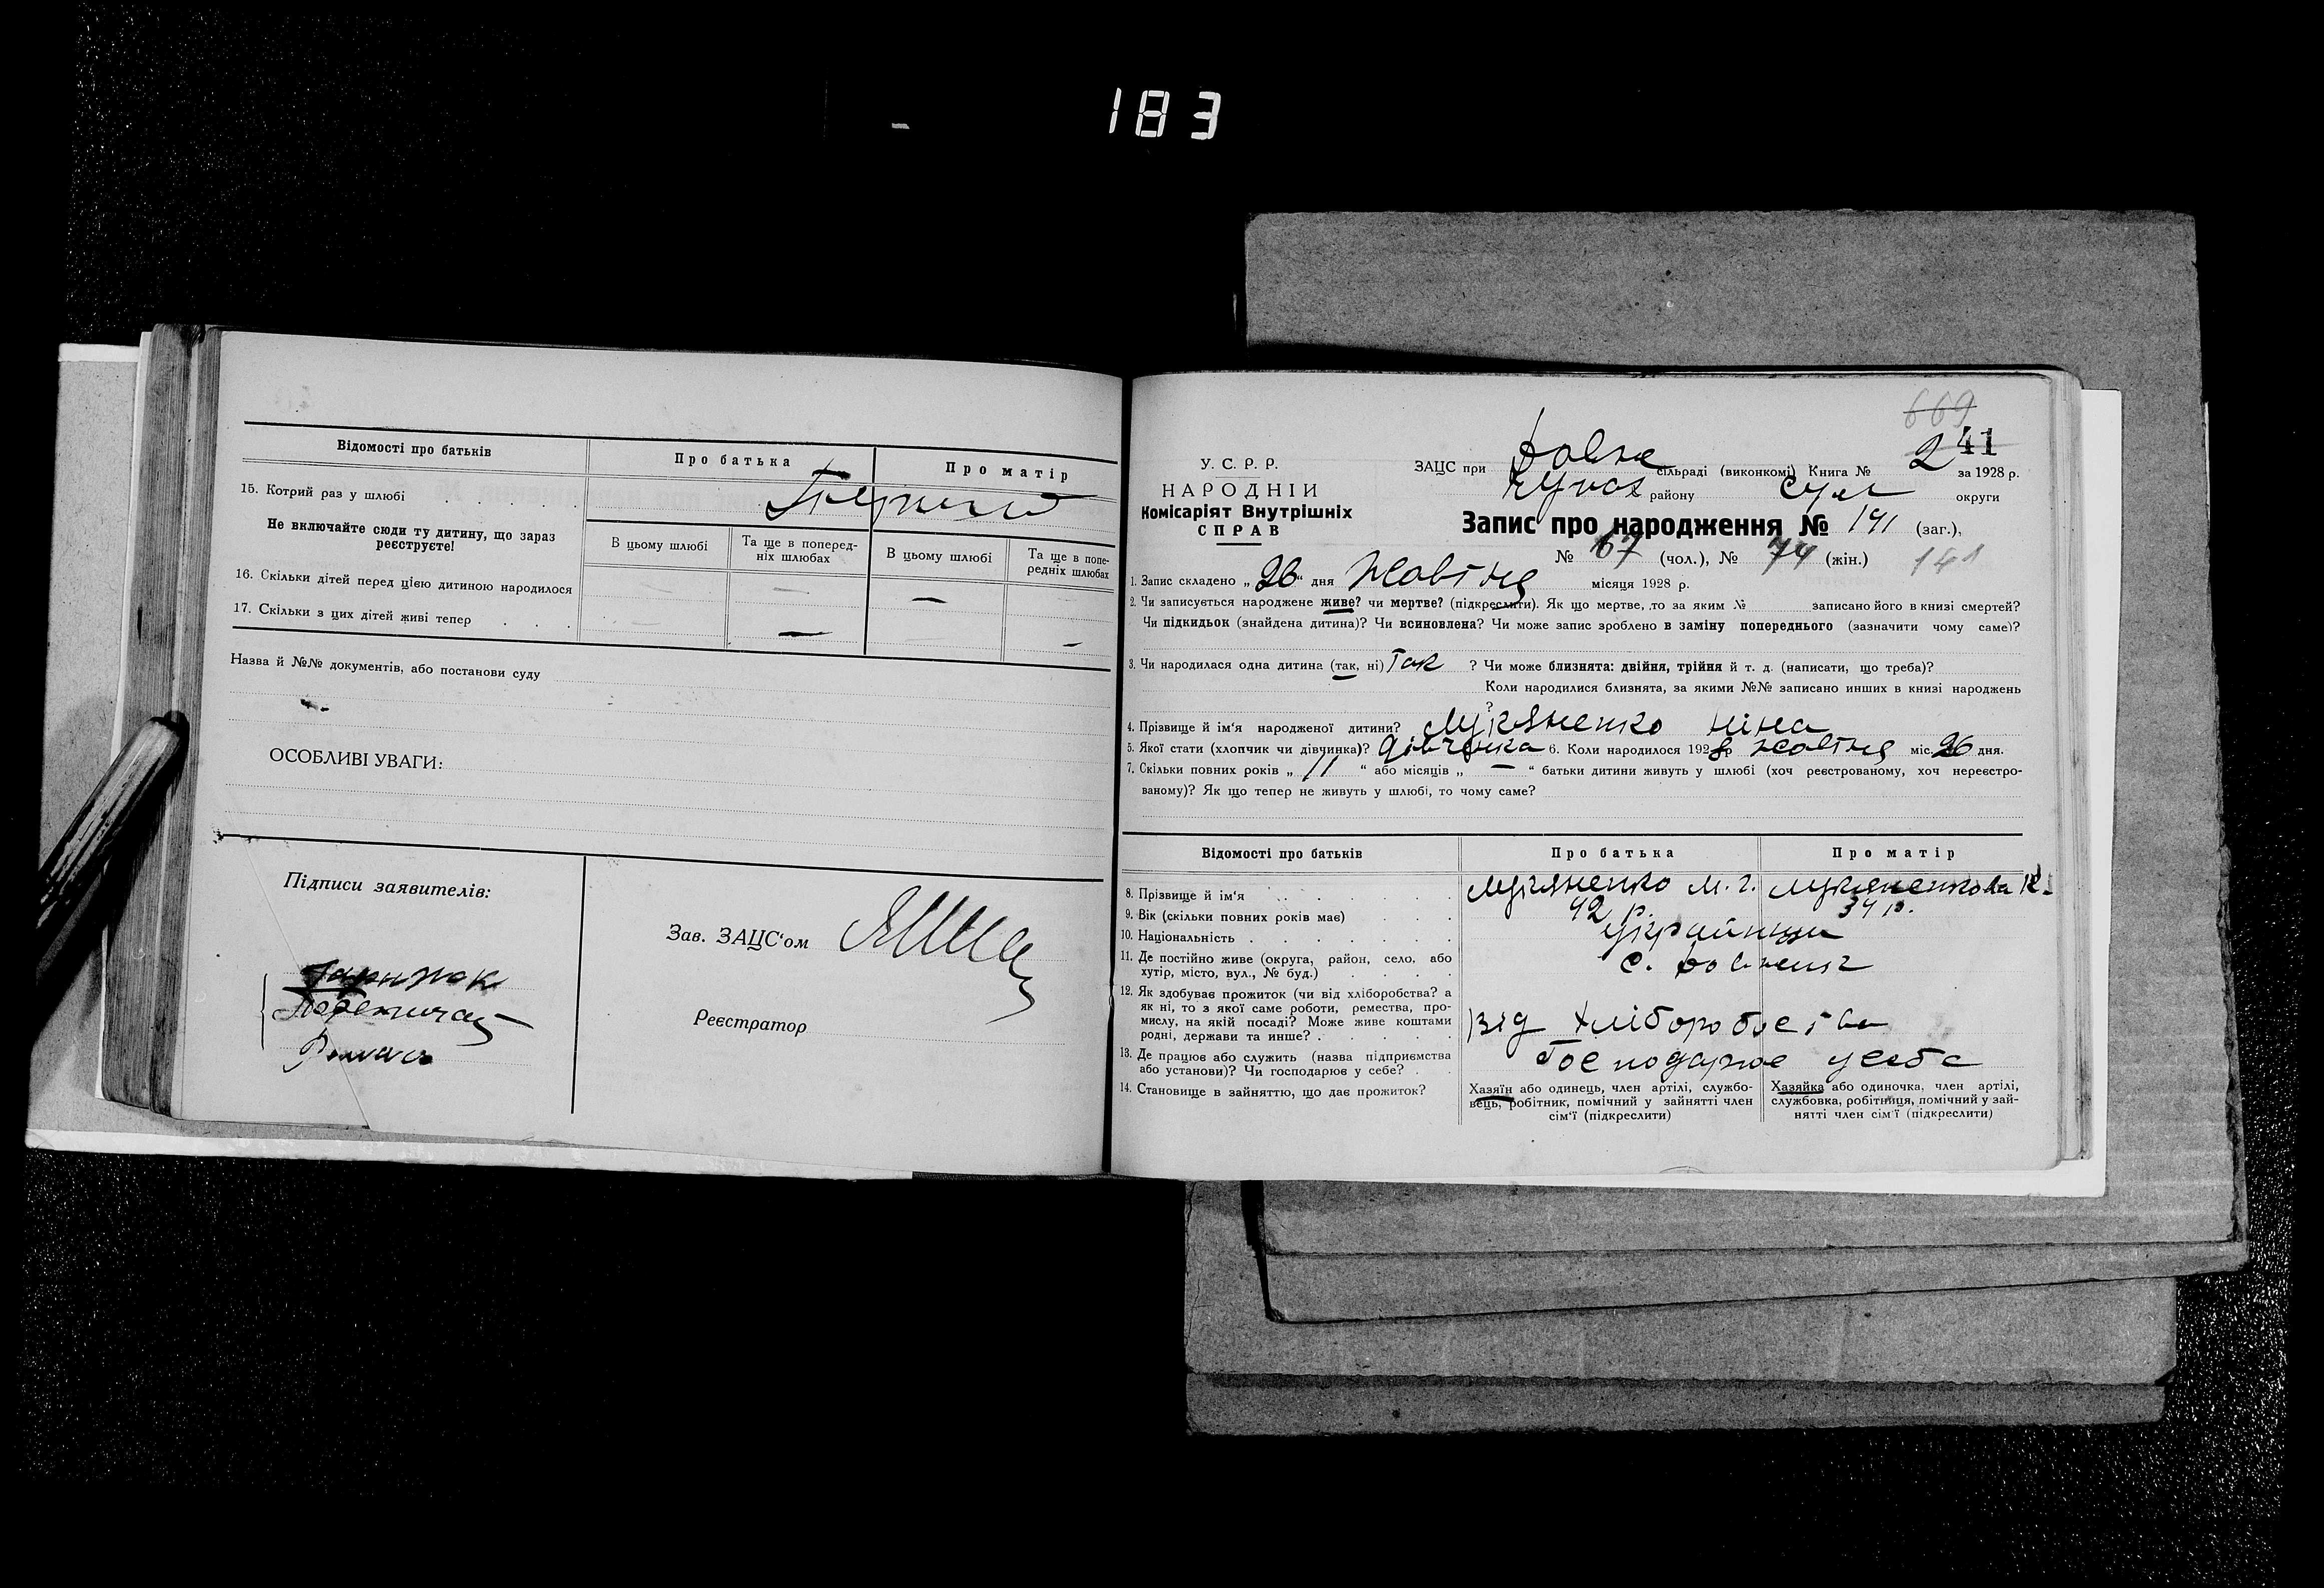 183
Відомості про батьків
Про батька
Про матір
15. Котрий раз у шлюбі
Не включайте сюди ту дитину, що зараз реєструєте!
В цьому шлюбі
Та ще в попередніх шлюбах
В цьому шлюбі
Та ще в попередніх шлюбах
16. Скільки дітей перед цією дитиною народилося
17. Скільки з цих дітей живі тепер
Назва й №№ документів, або постанови суду
ОСОБЛИВІ УВАГИ:
Підписи заявителів:
Зав. ЗАЦС'ом
Реєстратор
669
241
У. С. Р. Р.
НАРОДНІЙ
Комісаріят Внутрішніх
СПРАВ
ЗАЦС при сільраді (виконкомі) Книга № за 1928 р.
району округи
Запис про народження № 141 (заг.),
№ 67 (чол.), № 74 (жін.) 141
1. Запис складено „26“ дня Жовтня місяця 1928 р.
2. Чи записується народжене живе? чи мертве? (підкреслити). Як що мертве, то за яким № записано його в книзі смертей?
Чи підкидьок (знайдена дитина)? Чи всиновлена? Чи може запис зроблено в заміну попереднього (зазначити чому саме)?
3. Чи народилася одна дитина (так, ні) Так ? Чи може близнята: двійня, трійня й т. д. (написати, що треба)?
Коли народилися близнята, за якими №№ записано инших в книзі народжень
?
4. Прізвище й ім'я народженої дитини? Лукяненко Ніна
5. Якої стати (хлопчик чи дівчинка)? Дівчинка 6. Коли народилося 1928 р. жовтня міс. 26 дня.
7. Скільки повних років „ 11 “ або місяців „ — “ батьки дитини живуть у шлюбі (хоч реєстрованому, хоч нереєстро-
ваному)? Як що тепер не живуть у шлюбі, то чому саме?
Відомості про батьків
Про батька
Про матір
8. Прізвище й ім'я Лукяненко М. Г. Лукяненкова К.
9. Вік (скільки повних років має) 42 р. 34 р.
10. Національність Українці
11. Де постійно живе (округа, район, село, або
хутір, місто, вул., № буд.)
12. Як здобуває прожиток (чи від хліборобства? а
як ні, то з якої саме роботи, ремества, про-
мислу, на якій посаді? Може живе коштами
родні, держави та инше? Від Хліборобства
13. Де працює або служить (назва підприємства
або установи)? Чи господарює у себе? Господарює у себе
14. Становище в зайняттю, що дає прожиток?
Хазяїн або одинець, член артілі, службо-
вець, робітник, помічний у зайнятті член
сім'ї (підкреслити)
Хазяйка або одиночка, член артілі,
службовка, робітниця, помічний у зай-
нятті член сім'ї (підкреслити)